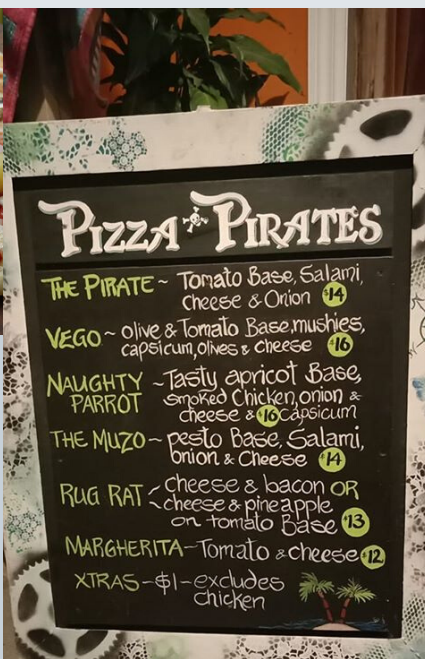 PIZZA PIRATES
THE PIRATE ~ Tomato Base, Salami,
cheese & Onion $14
VEGO ~ olive & Tomato Base, mushies,
capsicum, olives & cheese $16
NAUGHTY ~ Tasty apricot Base,
PARROT smoked Chicken, onion &
cheese & $16 capsicum
THE MUZO ~ pesto Base, Salami,
onion & Cheese $14
RUG RAT cheese & bacon OR
cheese & pineapple
on tomato Base $13
MARGHERITA - Tomato & cheese $12
XTRAS - $1 - excludes
chicken